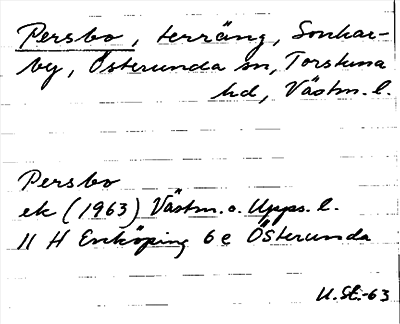 Persbo, terräng, Sonkar-
by, Österunda sn, Torstuna
hd, Västm. l.
Persbo
ek (1963) Västm. o. Upps. l.
11 H Enköping 6 e Österunda
U. St.-63